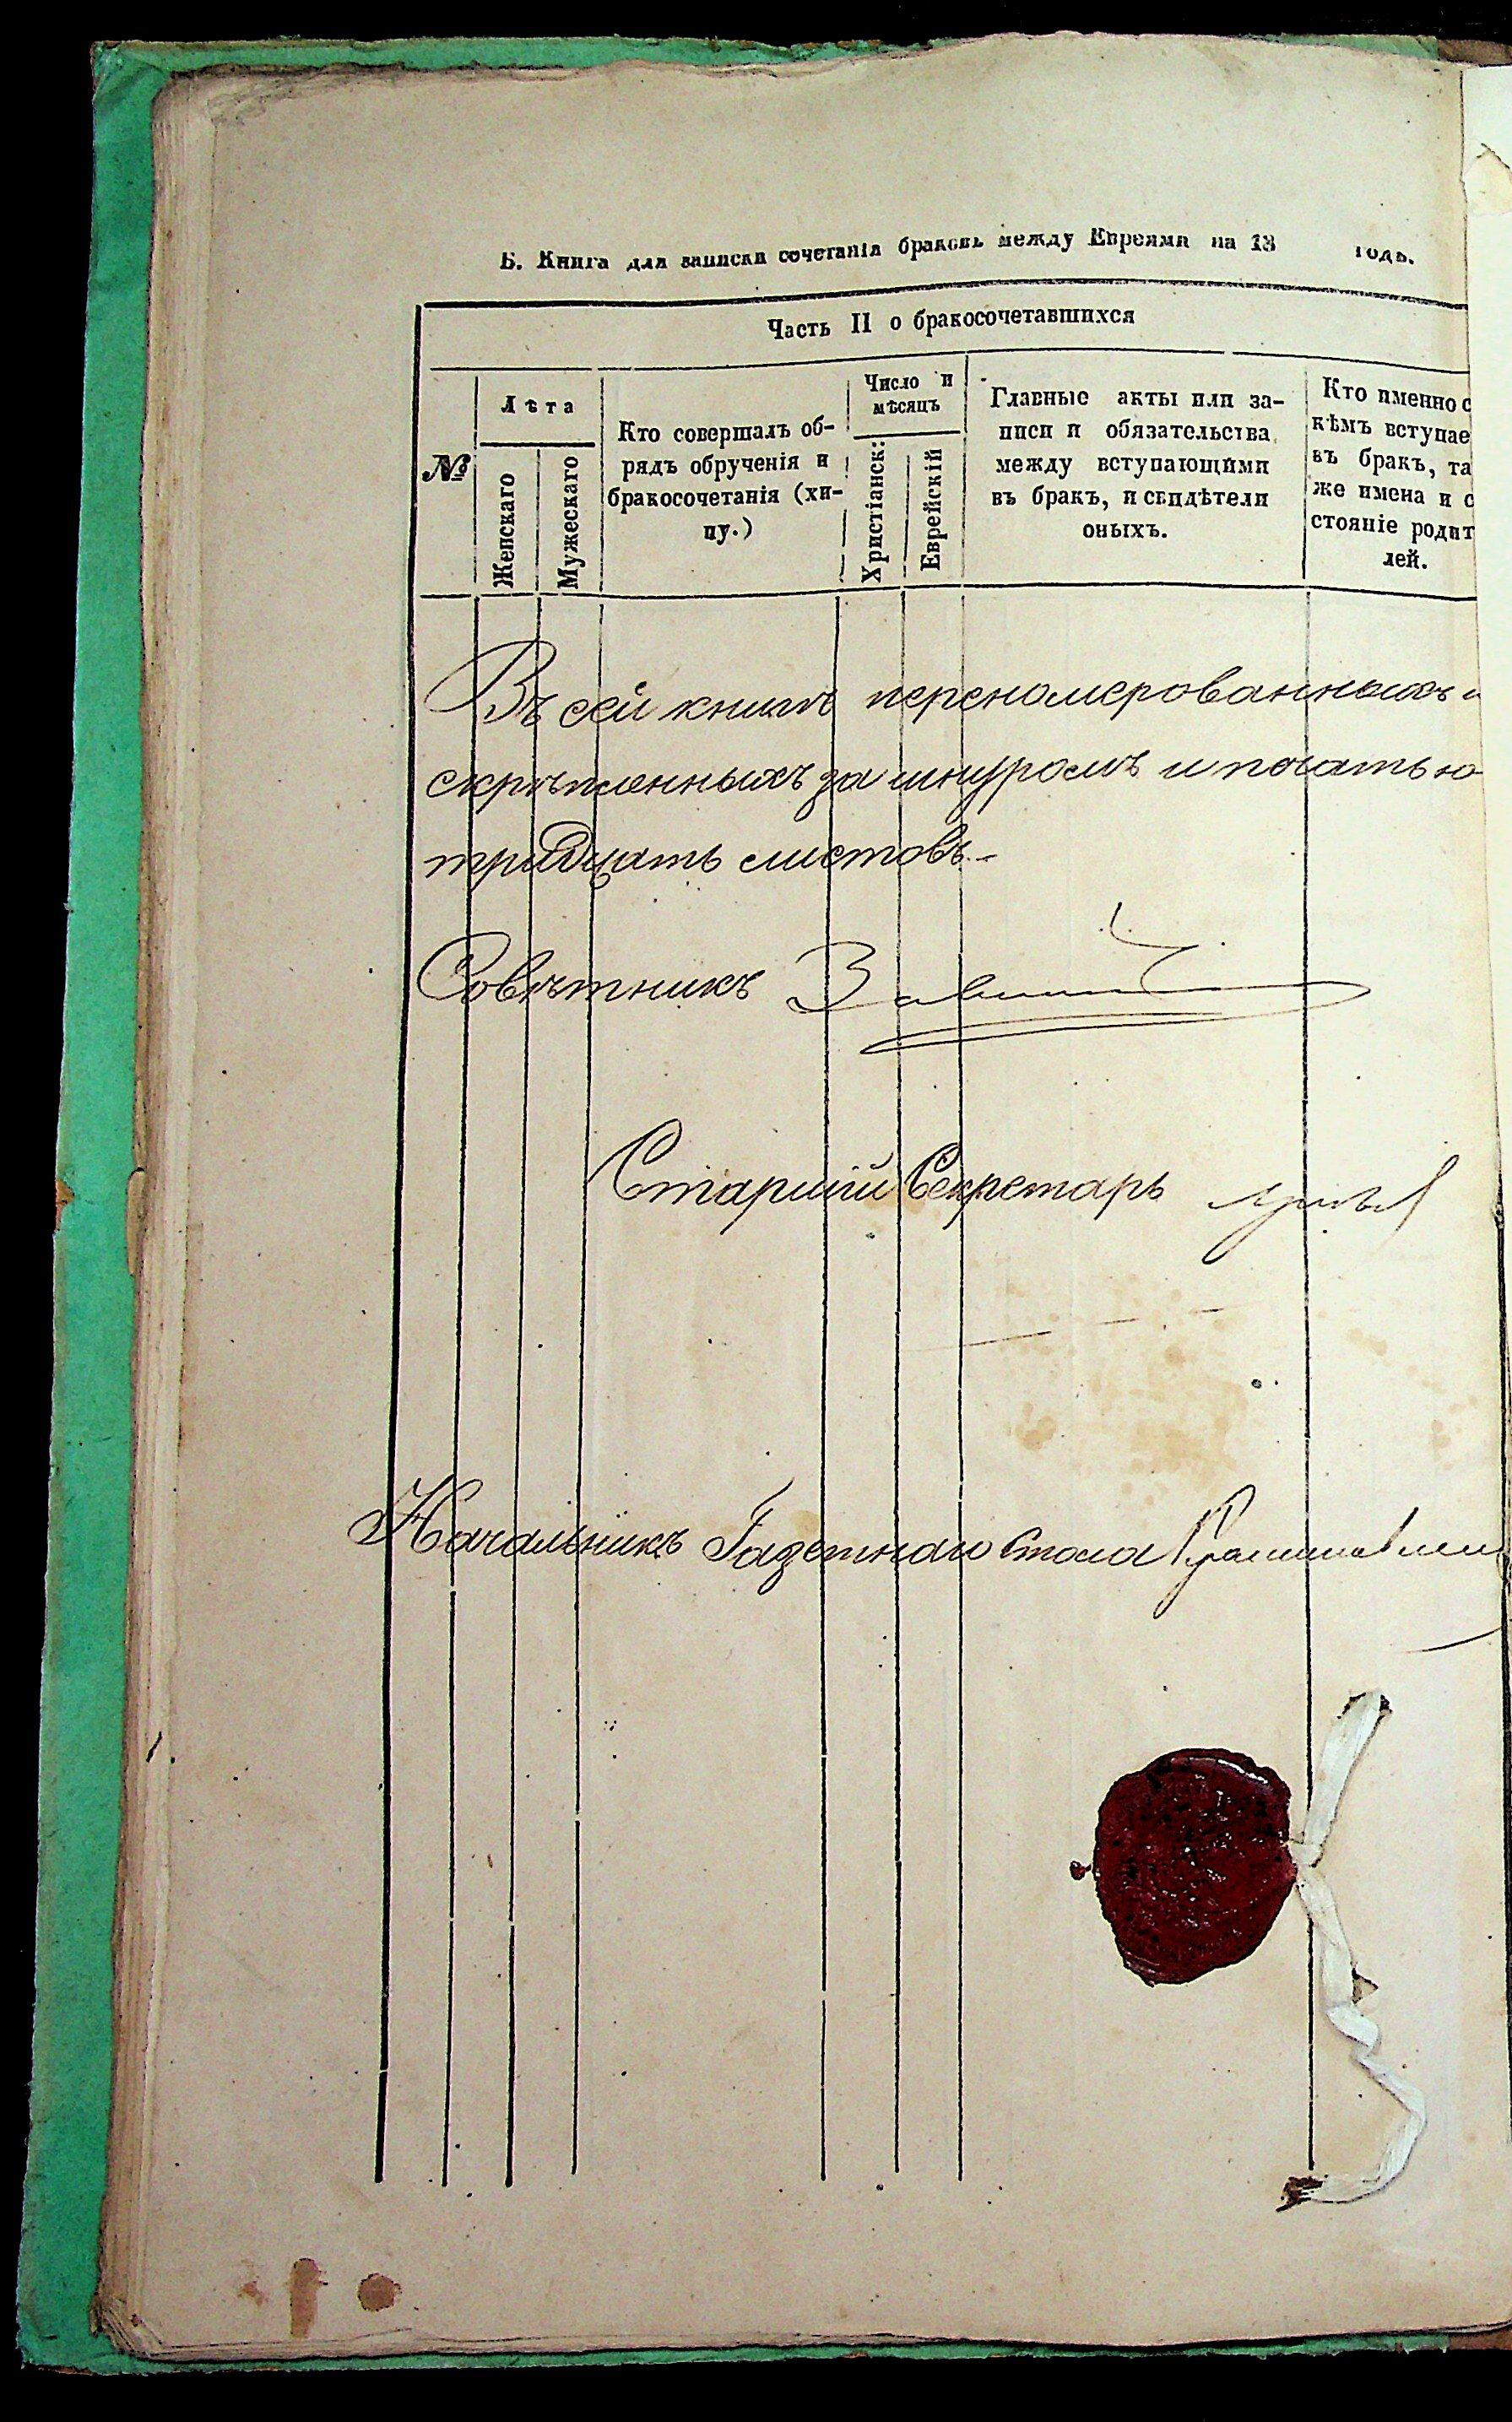 Б. Книга для записки сочетанія браковъ между Евреями на 18 годъ.
Часть II о бракосочетавшихся
№
Лѣта
Женскаго
Мужескаго
Кто совершалъ об-
рядъ обрученія и
бракосочетанія (хи-
пу.)
Число и
мѣсяцъ
Христіанск:
Еврейскій
Главные акты или за-
писи и обязательства
между вступающими
въ бракъ, и свидѣтели
оныхъ.
Кто именно с
кѣмъ вступае
въ бракъ, та
же имена и с
стояніе родит
лей.
Въ сей книгѣ переномерованныхъ и
скрѣпленныхъ за шнуромъ и печатью
тридцать листовъ.-
Совѣтникъ
Старшій Секретарь
Начальникъ Газетнаго Стола